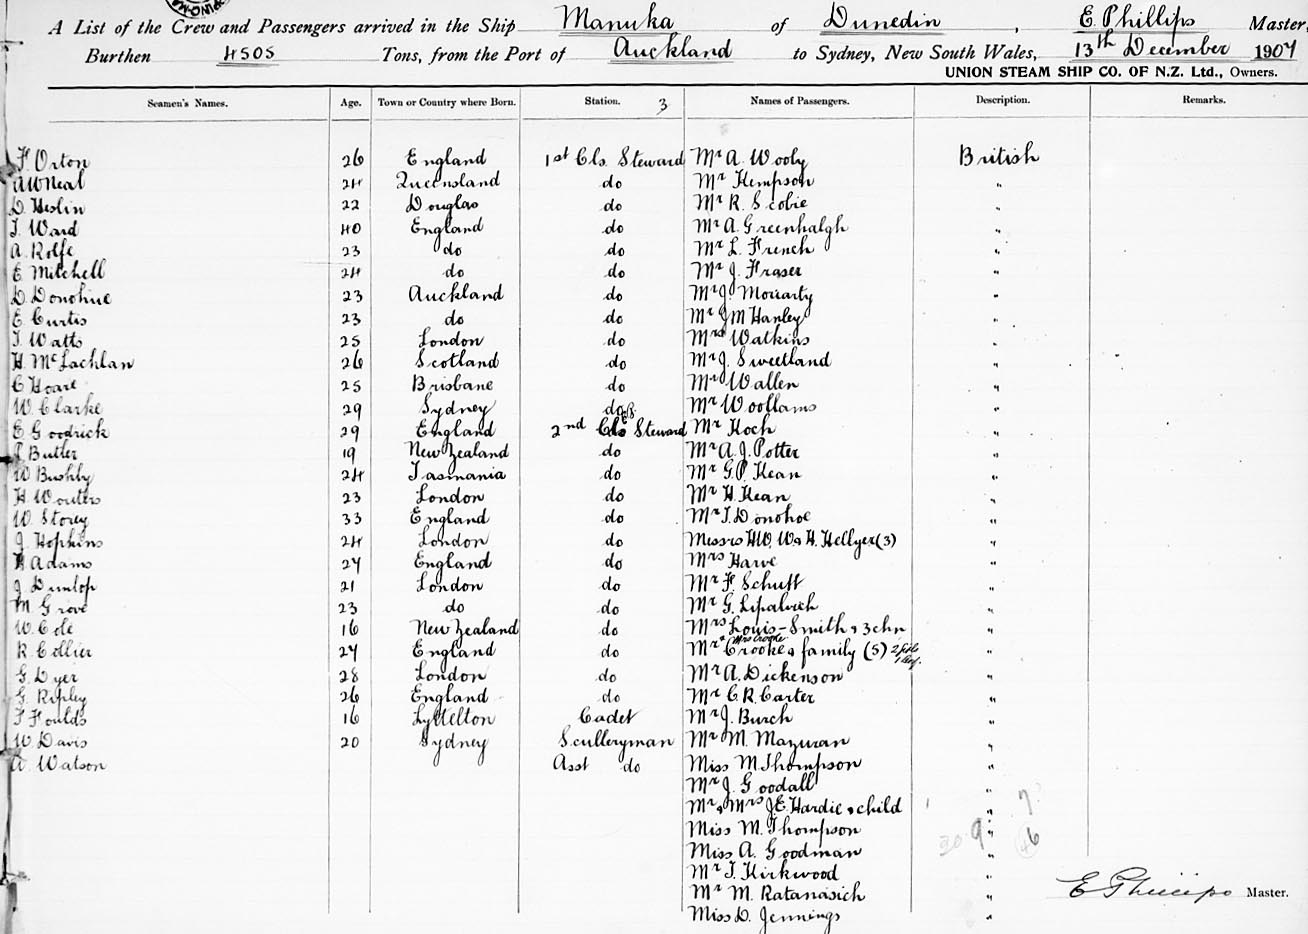 A List of the Crew and Passengers arrived in the Ship Manuka of Dunedin, E. Phillips Master,
Burthen 4505 Tons, from the Port of Auckland to Sydney, New South Wales, 13th December 1907
UNION STEAM SHIP CO. OF N.Z. Ltd., Owners.
Seamen's Names. Age. Town or Country where Born. Station. 3 Names of Passengers. Description. Remarks.
F. Orton 26 England 1st Cls. Steward Mr A. Wooly British
A W Neal 24 Queensland do Mr Kempson "
D. Heslin 22 Douglas do Mr R. Scobie "
T. Ward 40 England do Mr A. Greenhalgh "
A. Rolfe 23 do do Mr L. French "
E. Mitchell 24 do do Mr J. Fraser "
D. Donohue 23 Auckland do Mr J. Moriarty "
E. Curtis 23 do do Mr J M Hanley "
T. Watts 25 London do Mrs Watkins "
H. McLachlan 26 Scotland do Mr J. Sweetland "
C Hoare 25 Brisbane do Mr Wallen "
W. Clarke 29 Sydney do Mr Woollams "
E Goodrick 29 England 2nd Cls Steward Mr Koch "
P. Butler 19 New Zealand do Mr A. J. Potter "
W Bushby 24 Tasmania do Mr G. P. Kean "
H. Wouters 23 London do Mr H. Kean "
W. Storey 33 England do Mr T. Donohoe "
J. Hopkins 24 London do Messrs HW. W & H. Hellyer (3) "
Adams 27 England do Mrs Harve "
J. Dunlop 21 London do Mr F. Schuft "
M Grove 23 do do Mr G. Lipalvich "
W. Cole 16 New Zealand do Mrs Louis-Smith & 3 chn "
R. Collier 27 England do Mr & Mrs Crooke & family (5) "
G. Dyer 28 London do Mr A. Dickenson "
G. Ripley 26 England do Mr C. R. Carter "
F Foulds 16 Lyttelton Cadet Mr J. Burch "
W. Davis 20 Sydney Sculleryman Mr M. Mazuran "
A. Watson Asst do Miss M Thompson "
Mr J. Goodall "
Mr & Mrs J E. Hardie & child " 7
Miss M. Thompson " 30 9 46
Miss A. Goodman "
Mr T. Kirkwood "
Mr M. Ratanasich " E Phillips Master.
Miss D. Jennings "